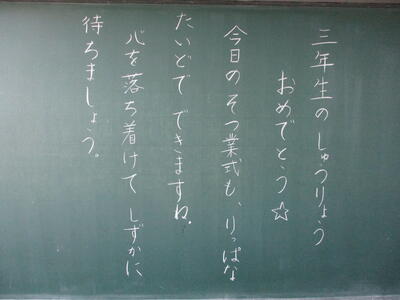 三年生のしゅうりょう
おめでとう☆
今日のそつ業式も、りっぱな
たいどでできますね。
心を落ち着けてしずかに
待ちましょう。